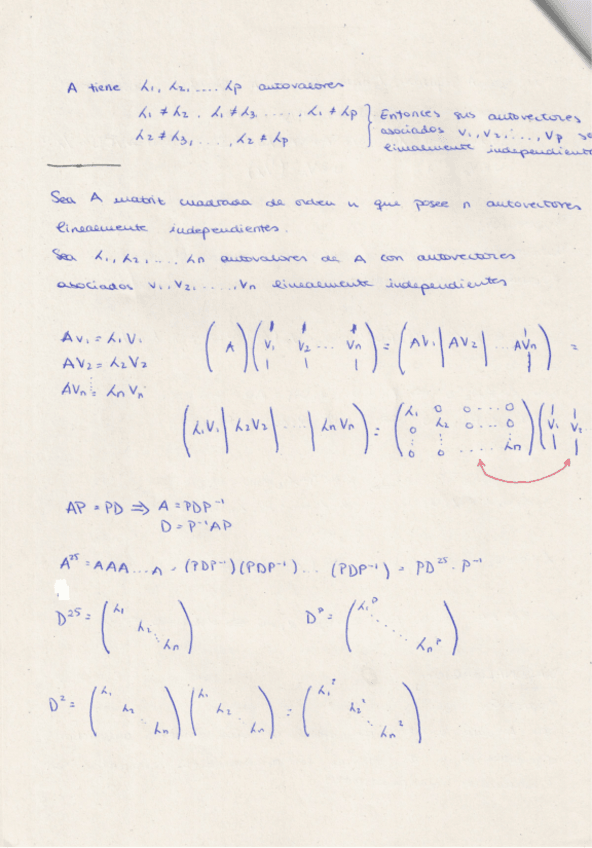 A tiene λ₁, λ₂, .... λp autovalores
λ₁ ≠ λ₂, λ₁ ≠ λ₃, ....., λ₁ ≠ λp } Entonces sus autovectores
λ₂ ≠ λ₃, ...., λ₂ ≠ λp asociados v₁, v₂, ..., vp
linealmente independiente
Sea A matriz cuadrada de orden n que posee n autovectores
linealmente independientes.
Sea λ₁, λ₂, ..., λn autovalores de A con autovectores
asociados v₁, v₂, ...., vn linealmente independientes
Av₁ = λ₁V₁ (A)(V₁ V₂ ... Vn) = (AV₁ | AV₂ | ... AVn) =
AV₂ = λ₂V₂
AVn = λnVn
(λ₁V₁ | λ₂V₂ | ... | λnVn) = (λ₁ 0 0 ... 0
0 λ₂ 0 ... 0
0 0 ..... λn) (V₁ V₂
AP = PD ⇒ A = PDP⁻¹
D = P⁻¹AP
A²⁵ = AAA ... A = (PDP⁻¹)(PDP⁻¹) ... (PDP⁻¹) = PD²⁵ · P⁻¹
D²⁵ = (λ₁ λ₂ ... λn) Dᴾ = (λ₁ᴾ ..... λnᴾ)
D² = (λ₁ λ₂ λn)(λ₁ λ₂ ... λn) = (λ₁² λ₂² ... λn²)